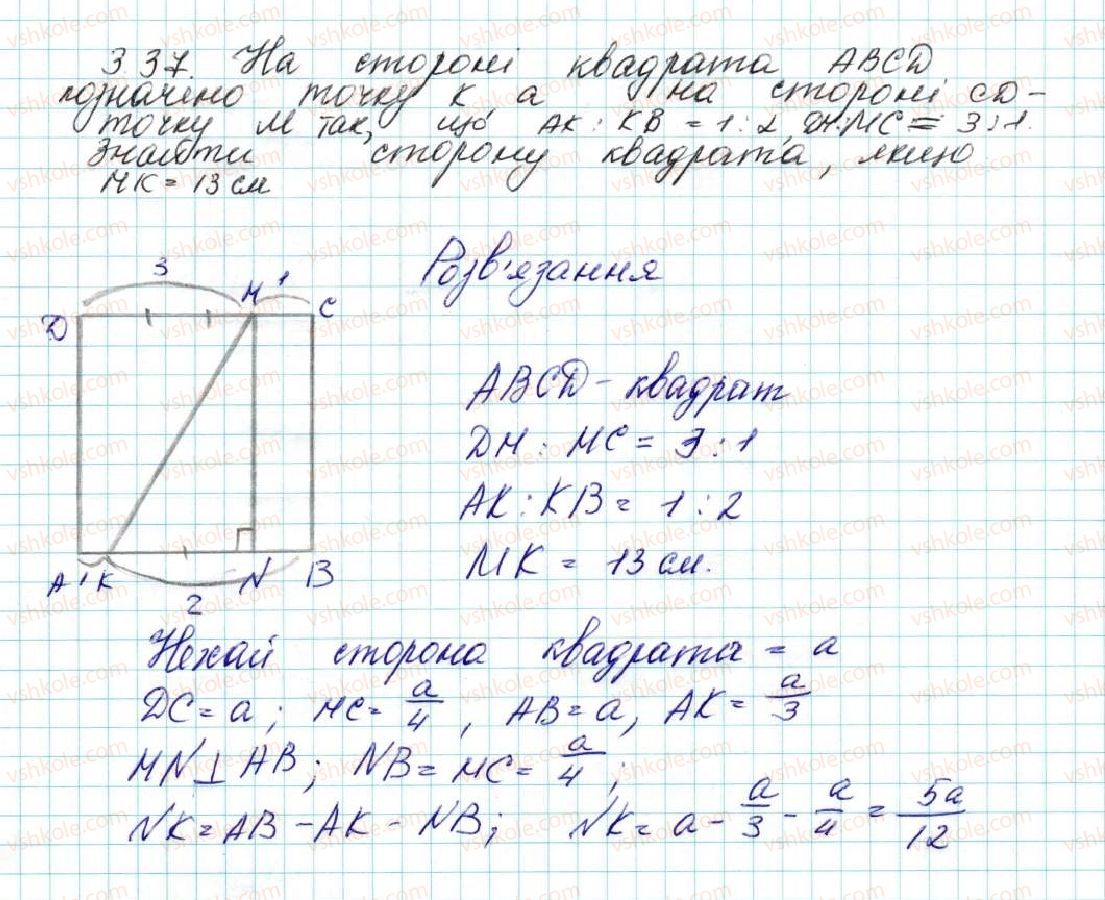 337. На стороні квадрата ABCD
позначено точку K, а на стороні CD-
точку M так, що AK : KB = 1 : 2, DM:MC = 3:1.
Знайти сторону квадрата, якщо
MK = 13 см
Розв'язання
3 M 1
D C
A 1 K N B
2
ABCD - квадрат
DM : MC = 3 : 1
AK : KB = 1 : 2
MK = 13 см.
Нехай сторона квадрата = a
DC = a; MC = a/4, AB = a, AK = a/3
MN ⊥ AB; NB = MC = a/4;
NK = AB - AK - NB; NK = a - a/3 - a/4 = 5a/12
vshkole.com